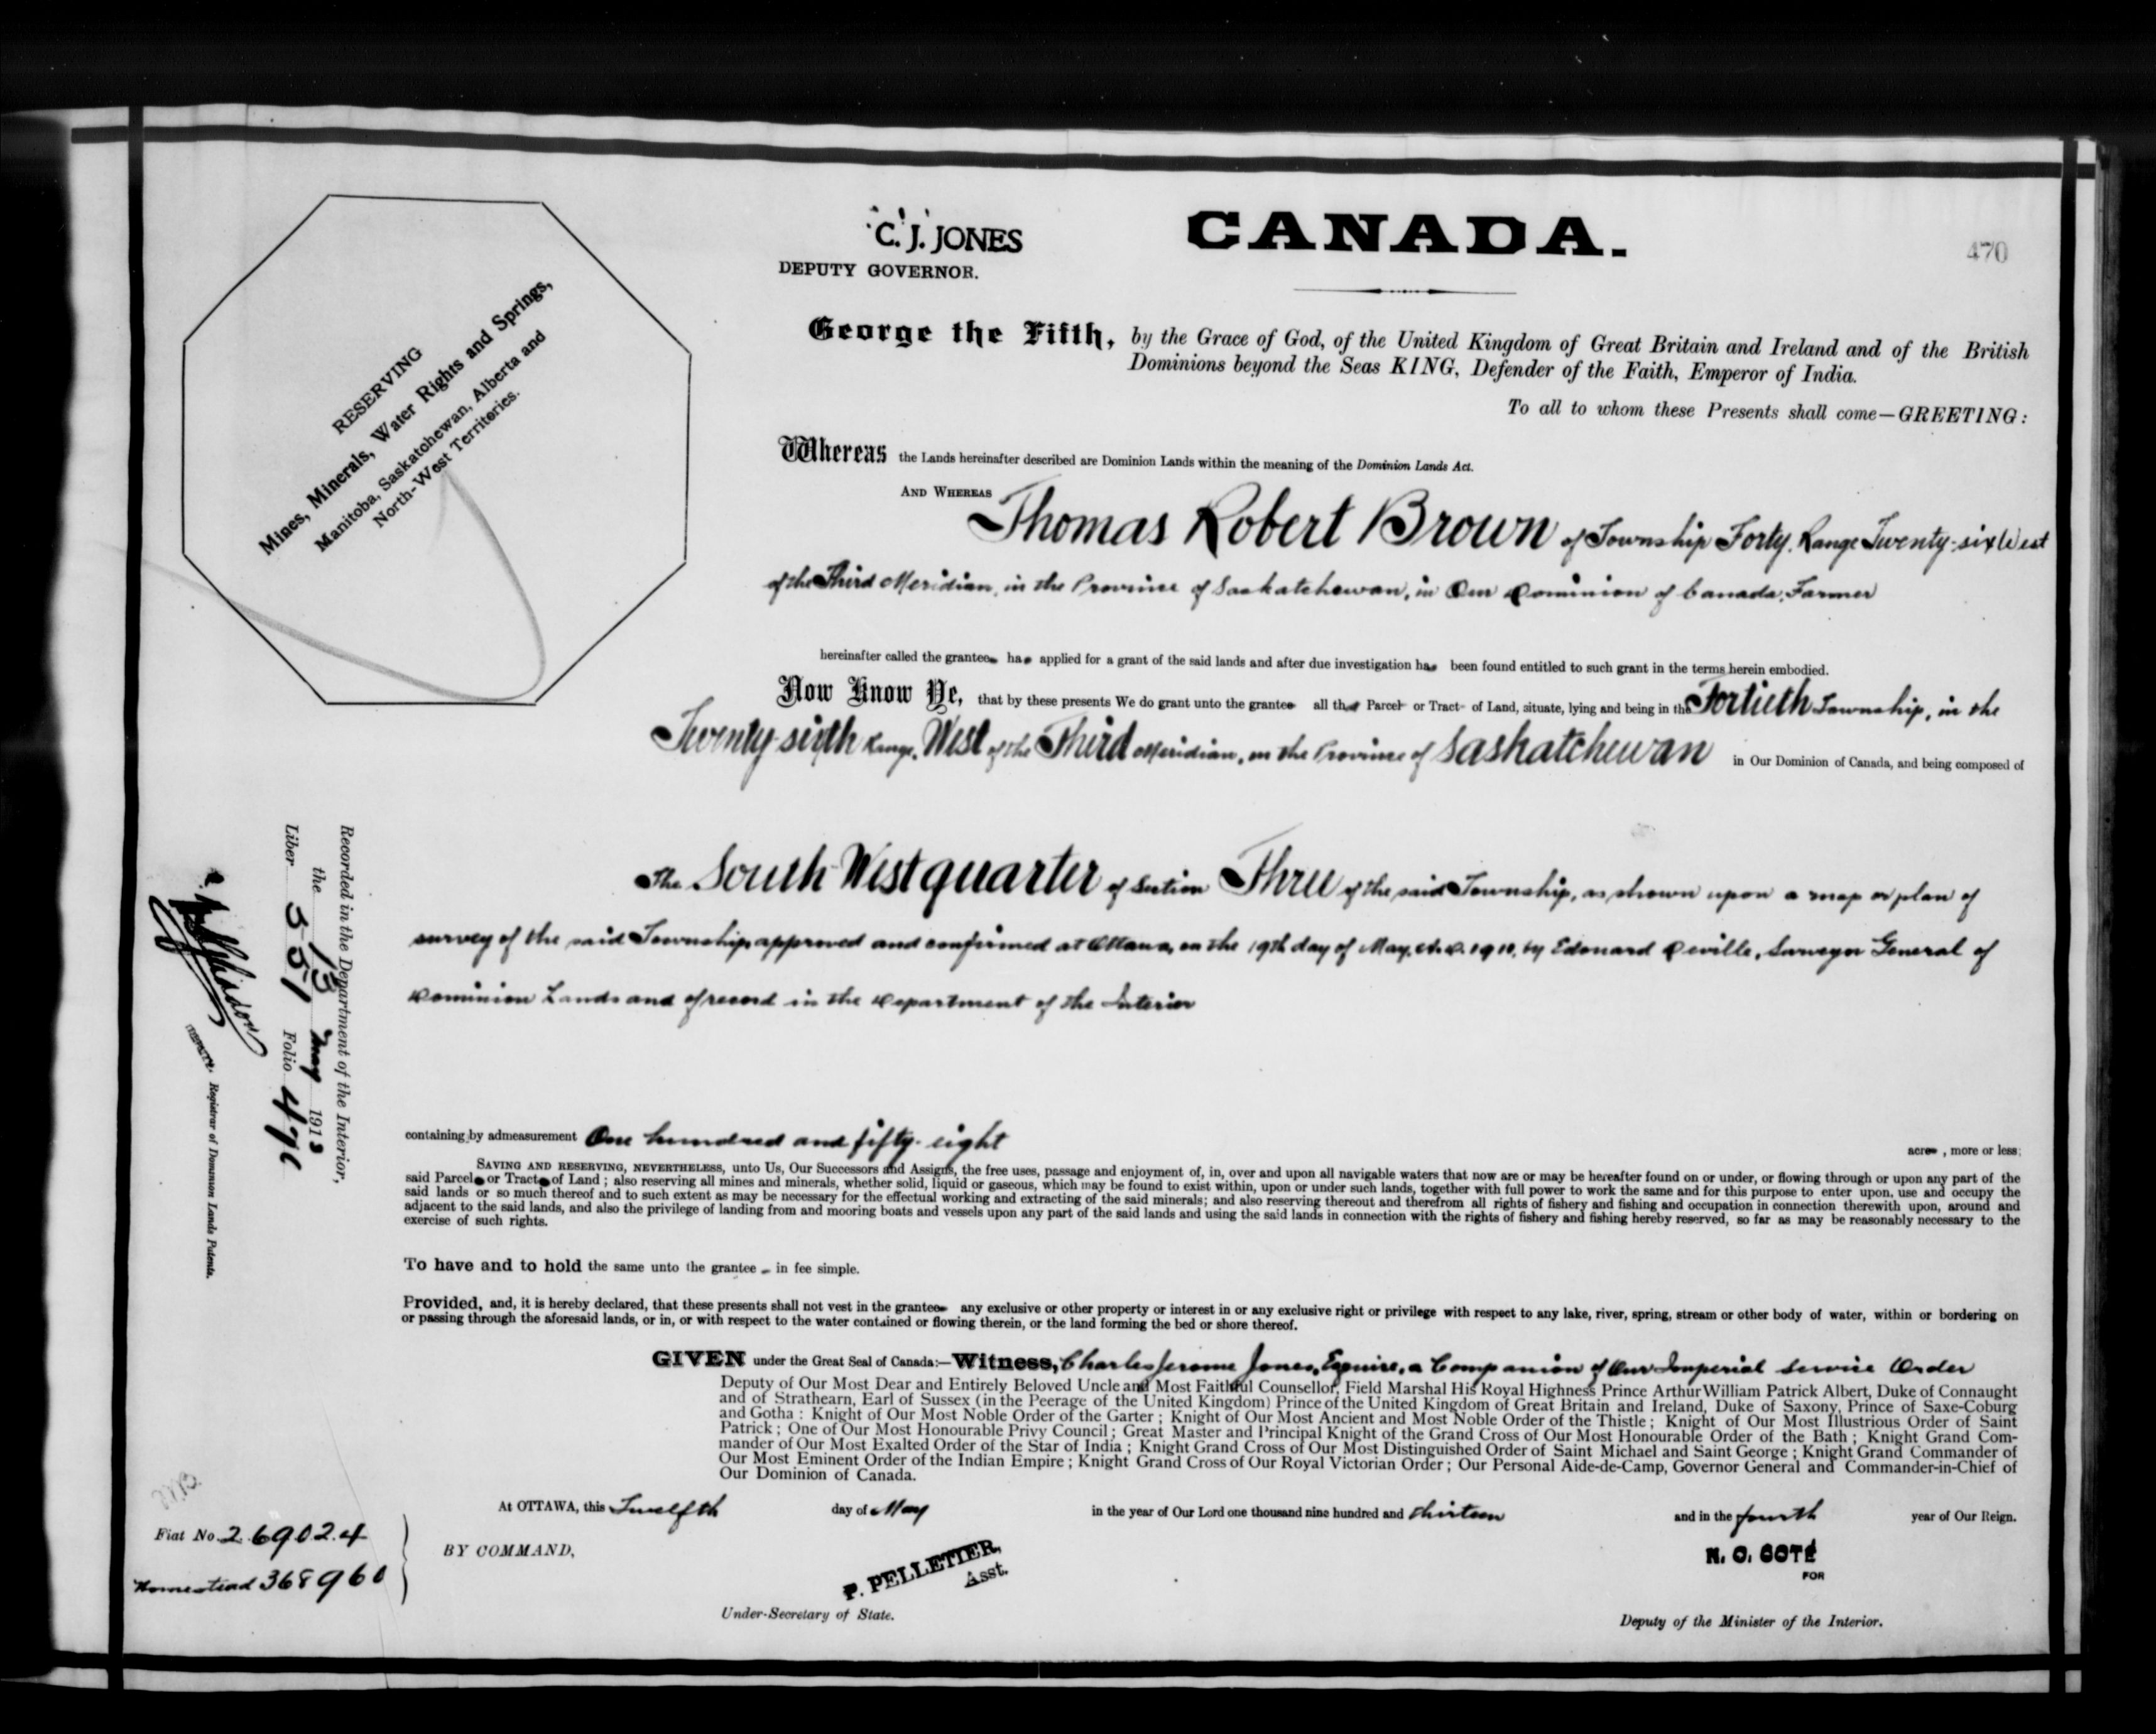 C. J. JONES
DEPUTY GOVERNOR.
CANADA.
470
RESERVING
Mines, Minerals, Water Rights and Springs,
Manitoba, Saskatchewan, Alberta and
North-West Territories.
George the Fifth, by the Grace of God, of the United Kingdom of Great Britain and Ireland and of the British
Dominions beyond the Seas KING, Defender of the Faith, Emperor of India.
To all to whom these Presents shall come—GREETING:
Whereas the Lands hereinafter described are Dominion Lands within the meaning of the Dominion Lands Act.
AND WHEREAS Thomas Robert Brown of Township Forty, Range Twenty-six West
of the Third Meridian, in the Province of Saskatchewan, in Our Dominion of Canada, Farmer
hereinafter called the grantee has applied for a grant of the said lands and after due investigation has been found entitled to such grant in the terms herein embodied.
Now Know Ye, that by these presents We do grant unto the grantee all that Parcel or Tract of Land, situate, lying and being in the Fortieth Township, in the
Twenty-sixth Range, West of the Third Meridian, in the Province of Saskatchewan in Our Dominion of Canada, and being composed of
The South West quarter of Section Three of the said Township, as shown upon a map or plan of
survey of the said Township, approved and confirmed at Ottawa, on the 19th day of May, A.D. 1910, by Edouard Deville, Surveyor General of
Dominion Lands and of record in the Department of the Interior
containing by admeasurement One hundred and fifty-eight acres, more or less;
SAVING AND RESERVING, NEVERTHELESS, unto Us, Our Successors and Assigns, the free uses, passage and enjoyment of, in, over and upon all navigable waters that now are or may be hereafter found on or under, or flowing through or upon any part of the
said Parcel or Tract of Land; also reserving all mines and minerals, whether solid, liquid or gaseous, which may be found to exist within, upon or under such lands, together with full power to work the same and for this purpose to enter upon, use and occupy the
said lands or so much thereof and to such extent as may be necessary for the effectual working and extracting of the said minerals; and also reserving thereout and therefrom all rights of fishery and fishing and occupation in connection therewith upon, around and
adjacent to the said lands, and also the privilege of landing from and mooring boats and vessels upon any part of the said lands and using the said lands in connection with the rights of fishery and fishing hereby reserved, so far as may be reasonably necessary to the
exercise of such rights.
To have and to hold the same unto the grantee in fee simple.
Provided, and, it is hereby declared, that these presents shall not vest in the grantee any exclusive or other property or interest in or any exclusive right or privilege with respect to any lake, river, spring, stream or other body of water, within or bordering on
or passing through the aforesaid lands, or in, or with respect to the water contained or flowing therein, or the land forming the bed or shore thereof.
GIVEN under the Great Seal of Canada:—Witness, Charles Jerome Jones, Esquire, a Companion of Our Imperial Service Order
Deputy of Our Most Dear and Entirely Beloved Uncle and Most Faithful Counsellor, Field Marshal His Royal Highness Prince Arthur William Patrick Albert, Duke of Connaught
and of Strathearn, Earl of Sussex (in the Peerage of the United Kingdom) Prince of the United Kingdom of Great Britain and Ireland, Duke of Saxony, Prince of Saxe-Coburg
and Gotha: Knight of Our Most Noble Order of the Garter; Knight of Our Most Ancient and Most Noble Order of the Thistle; Knight of Our Most Illustrious Order of Saint
Patrick; One of Our Most Honourable Privy Council; Great Master and Principal Knight of the Grand Cross of Our Most Honourable Order of the Bath; Knight Grand Com-
mander of Our Most Exalted Order of the Star of India; Knight Grand Cross of Our Most Distinguished Order of Saint Michael and Saint George; Knight Grand Commander of
Our Most Eminent Order of the Indian Empire; Knight Grand Cross of Our Royal Victorian Order; Our Personal Aide-de-Camp, Governor General and Commander-in-Chief of
Our Dominion of Canada.
At OTTAWA, this Twelfth day of May in the year of Our Lord one thousand nine hundred and thirteen and in the fourth year of Our Reign.
BY COMMAND,
P. PELLETIER,
Asst.
Under-Secretary of State.
N. O. COTÉ
FOR
Deputy of the Minister of the Interior.
Recorded in the Department of the Interior,
the 13 May 1913
Liber 551 Folio 470
DEPUTY. Registrar of Dominion Lands Patents.
Fiat No. 269024
Homestead 368960